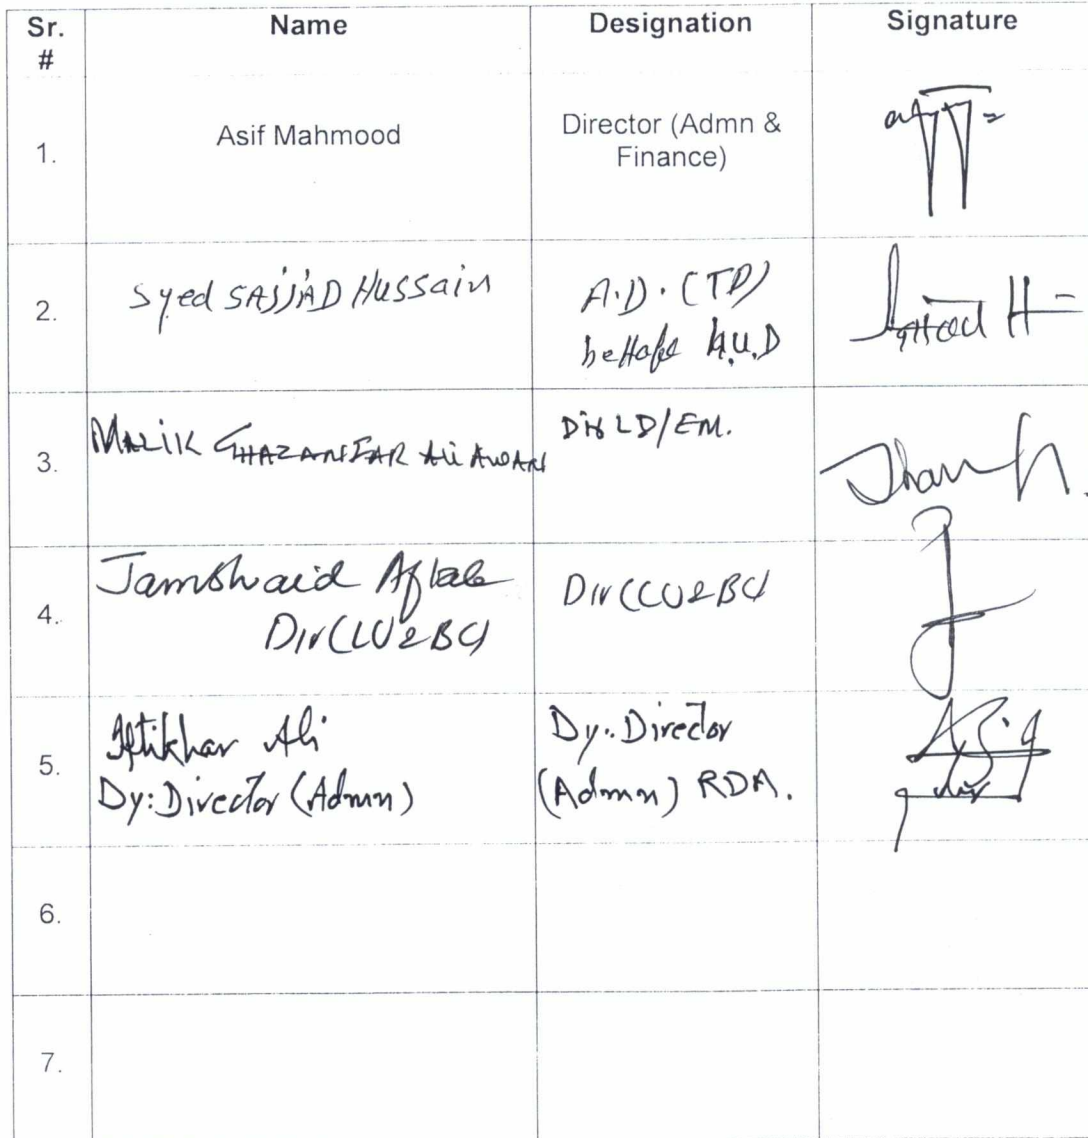 Sr. # Name Designation Signature
1. Asif Mahmood Director (Admn &
Finance)
2. Syed SAJJAD HUSSain A.D. (TP)
behafe
3. MALIK GHAZANFAR Ali AWAN Dir LD/EM.
4. Jamshaid Aftab
Dir(LU&BC) Dir(LU&BC)
5. Iftikhar Ali Dy: Director
Dy: Director (Admn) (Admn) RDA.
6.
7.